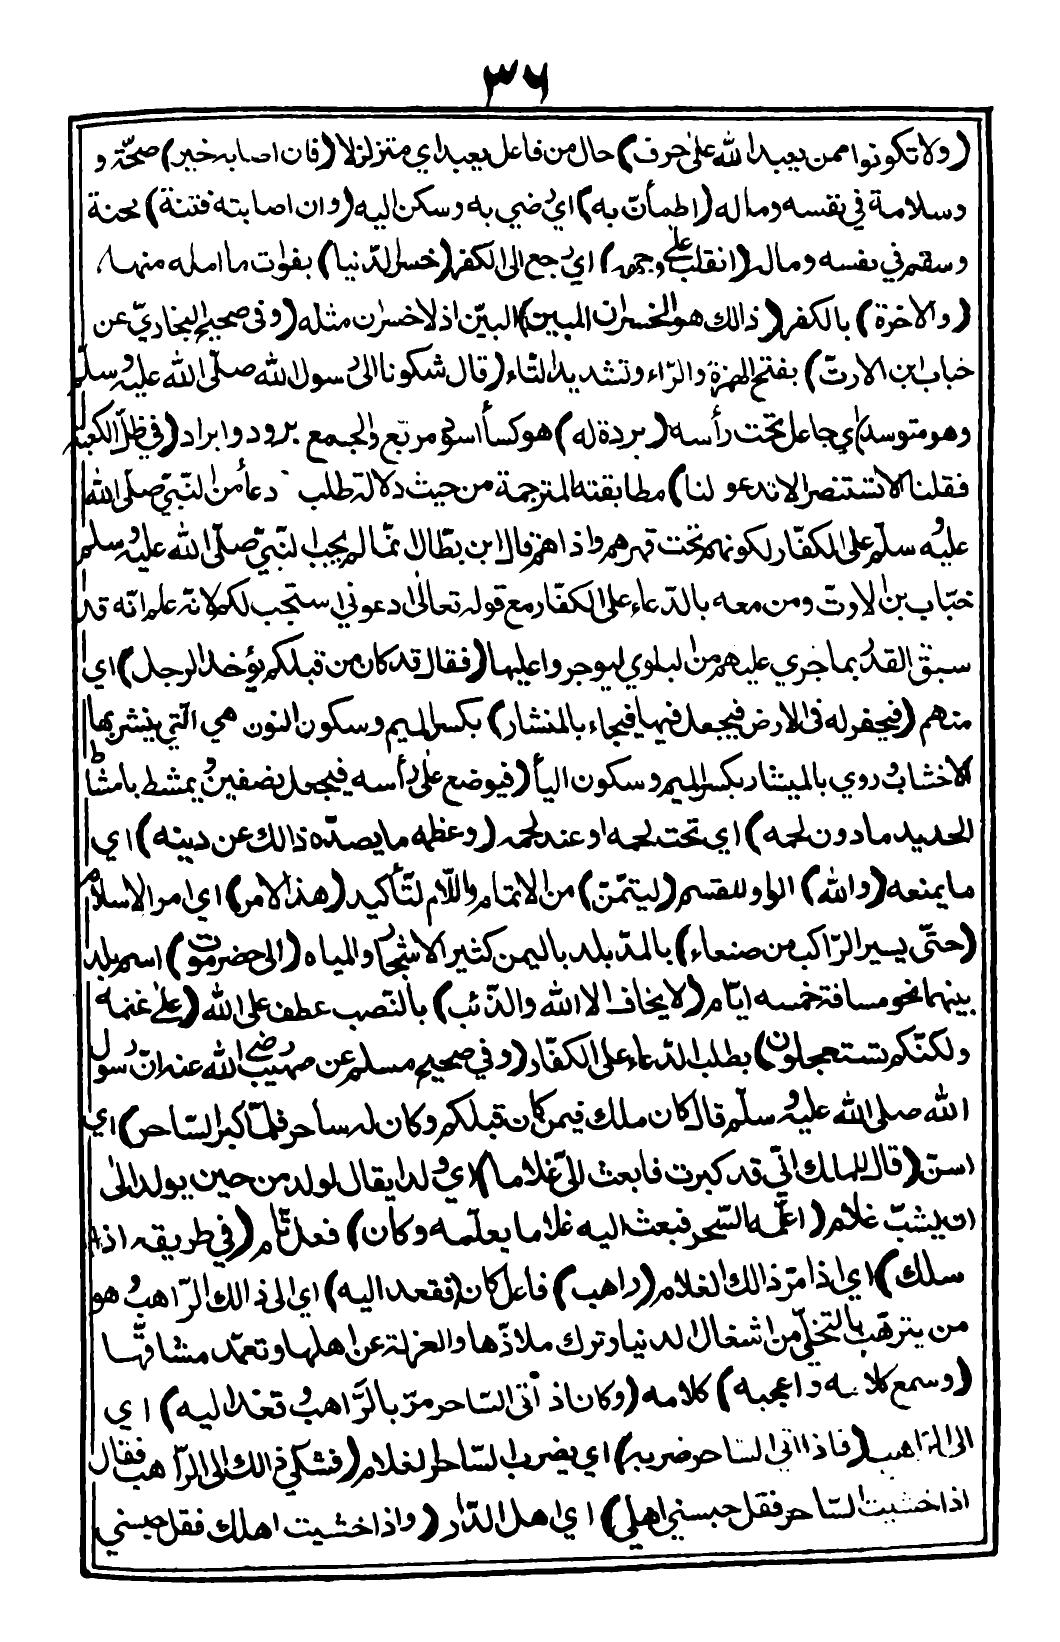 ٣٦
(ولا تكونوا ممن يعبد الله على حرف) حال من فاعل يعبد اي متزلزلا (فان اصابه خير) صحّة و
وسلامة في نفسه وماله (اطمأنّ به) اي رضي به وسكن اليه (وان اصابته فتنة) محنة
وسقم في نفسه وماله (انقلب على وجهه) اي رجع الى الكفر (خسر الدّنيا) بفوات ما امله منها
(والاخرة) بالكفر (ذالك هو الخسران المبين) البيّن اذ لا خسران مثله (وفى صحيح البخاريّ عن
خباب ابن الارتّ) بفتح الهمزة والرّاء وتشديد التّاء (قال شكونا الى رسول الله صلّى الله عليه وسلّم
وهو متوسد) اي جاعل تحت رأسه (بردة له) هو كسأ اسود مربّع والجمع برود وابراد (في ظلّ الكعبة
فقلنا الا تستنصر الا تدعو لنا) مطابقته المترجمة من حيث دلالة طلب دعأ من النّبيّ صلّى الله
عليه وسلّم على الكفّار لكونهم تحت قهرهم واذاهم قال ابن بطّال ممّا لم يجب النّبيّ صلّى الله عليه وسلم
خبّاب بن الارتّ ومن معه بالدّعاء على الكفّار مع قوله تعالى ادعوني استجب لكم لانّه علم انّه قد
سبق القدر بما جري عليهم من البلوي ليوجروا عليها (فقال قد كان من قبلكم يؤخذ الرجل) اي
منهم (فيحفر له فى الارض فيجعل فيها فيجاء بالمنشار) بكسر الميم وسكون النون هي الّتي ينشر بها
الاخشاب وروي بالميشار بكسر الميم وسكون اليأ (فيوضع على رأسه فيجعل نصفين ويمشط بامشاط
الحديد مادون لحمه) اي تحت لحمه او عند لحمه (وعظمه ما يصدّه ذالك عن دينه) اي
ما يمنعه (والله) الواو للقسم (ليتمّنّ) من الاتمام واللّام لتّأكيد (هذا الامر) اي امر الاسلام
(حتّى يسير الرّاكب من صنعاء) بالمدّ بلد باليمن كثير الاشجار والمياه (الى حضرموت) اسم بلد
بينهما نحو مسافة خمسه ايّام (لا يخاف الا الله والذّئب) بالنّصب عطف على الله (على غنمه
ولكنّكم تستعجلون) بطلب الدّعاء على الكفّار (وفي صحيح مسلم عن صهيب رضي الله عنه انّ رسول
الله صلى الله عليه وسلّم قال كان ملك فيمن كان قبلكم وكان له ساحر فلمّا كبر السّاحر) اي
اسنّ (قال للملك انّي قد كبرت فابعث اليّ غلاما) اي ولدا يقال لولد من حين يولد الى
ان يشبّ غلام (اعلّمه السّحر فبعث اليه غلاما يعلّمه وكان) فعل تّام (في طريقه اذا
سلك) اي اذا مرّ ذالك الغلام (راهب) فاعل كان (فقعد اليه) اي الى ذالك الرّاهب وهو
من يترهّب بالتّخلّي من اشغال الدنيا وترك ملاذّها والعزلة عن اهلها وتعمّد مشاقّها
(وسمع كلامه واعجبه) كلامه (وكان اذ أتى السّاحر مرّ بالرّاهب وقعد اليه) اي
الى الرّاهب (فاذا اتى السّاحر ضربه) اي يضرب السّاحر الغلام (فشكي ذالك الى الرّاهب فقال
اذا خشيت السّاحر فقل حبسني اهلي) اي اهل الدّار (واذا خشيت اهلك فقل حبسني